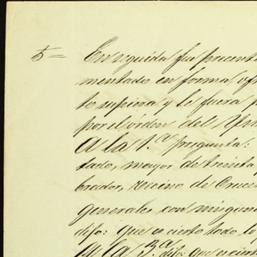 5= En seguida fue present
mentado en forma ofr
to supiera y le fuera p
por el órden del Ynt
A la 1.ª pregunta:
tado, mayor de treinta
brador, vecino de Cruce
generales con ningun
dijo: que es cierto todo lo
A la 3.ª dijo: que es cierto